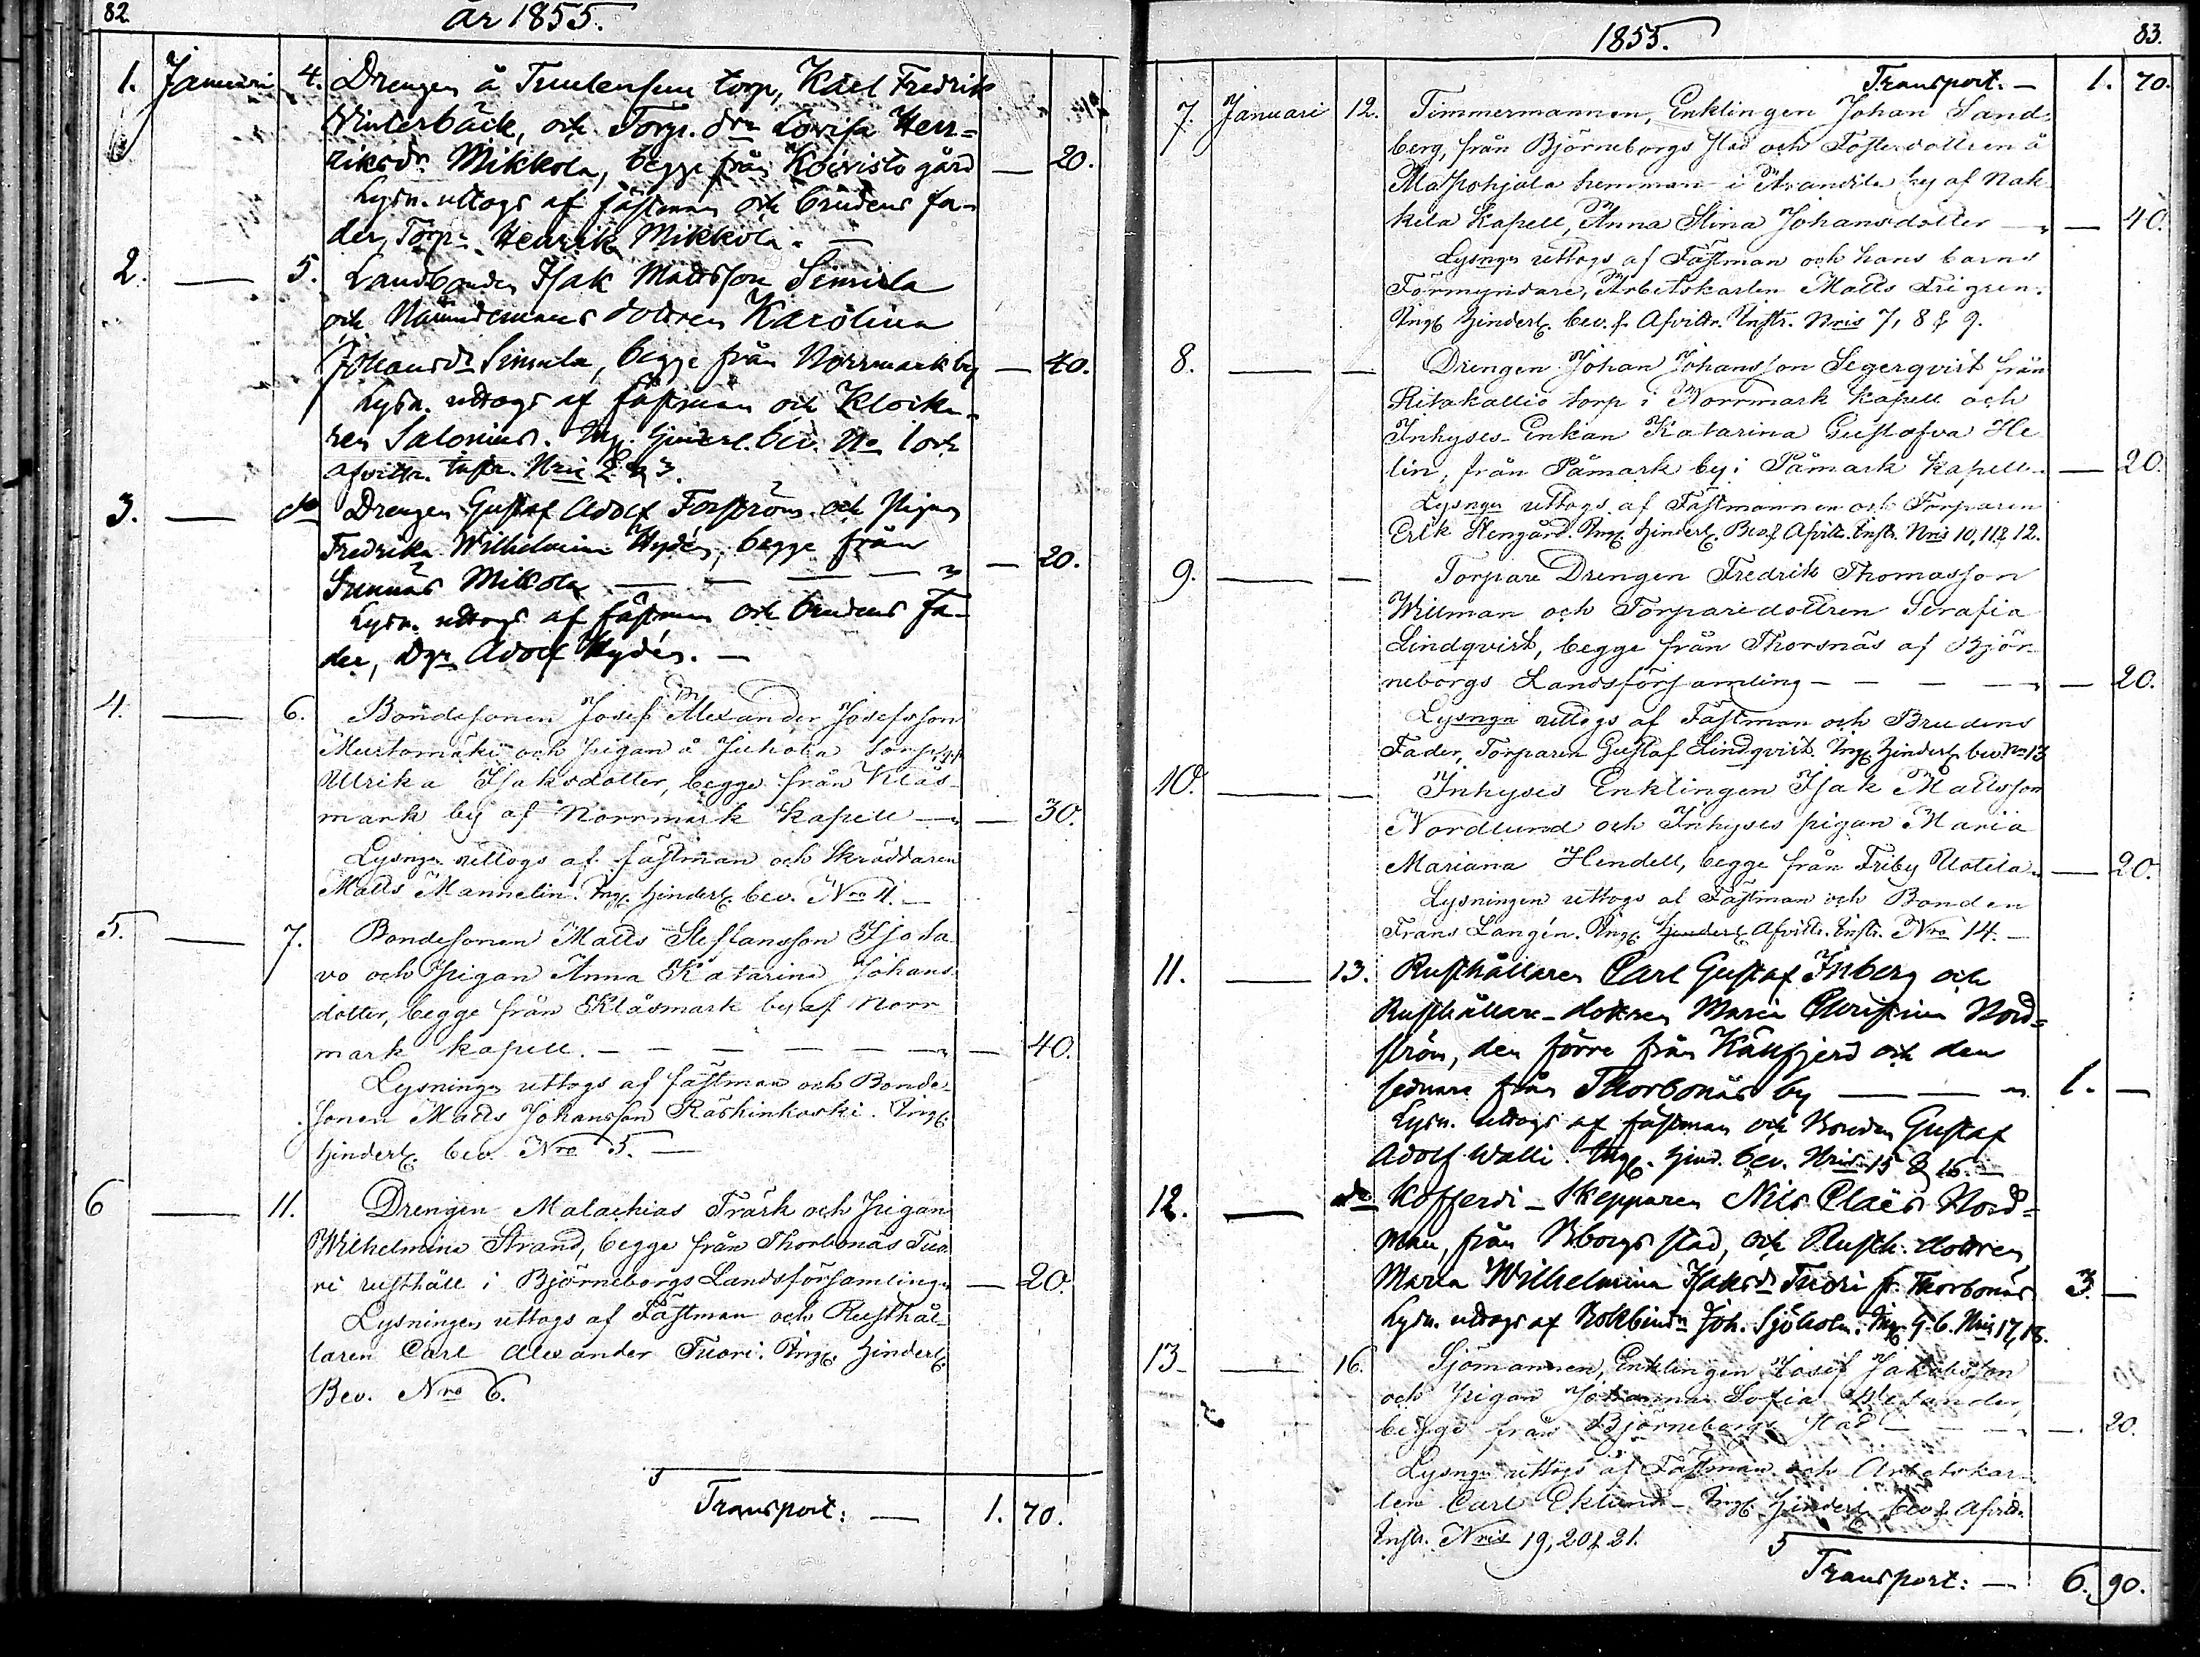 82.
år 1855.
1. Januari 4. Drengen å Truutensuu torp, Karl Fredrik
Winterbäck, och Torp. dr Lovisa Hen=
riksdr Mikkola, begge från Koivisto gård — 20.
Lysn. uttogs af fästman och brudens fa-
der, Torp. Henrik Mikkola. —
2. — 5. Landbonden Isak Mattsson Simula
och Nämndemans dottren Karolina
Johansdr Simula, begge från Norrmark by — 40.
Lysn. uttogs af fästman och Klocka-
ren Salonius. Ing. hinderl. bev. No 1 och
afvittr. instr. Nris 2 & 3.
3. — do Drengen Gustaf Adolf Forström och Pigan
Fredrika Wilhelmina Hydén, begge från
Sunnäs Mikkola — — — — 20.
Lysn. uttogs af fästman och brudens Fa-
der, Dgr Adolf Hydén. —
4. — 6. Bondesonen Josef Alexander Josefsson
Mustomäki och pigan å Juhola torp,
Ulrika Isaksdotter, begge från Klås-
mark by af Norrmark Kapell — 30.
Lysngn uttogs af fästman och Skräddaren
Matts Mannelin. Ing. hinderl. bev. Nro 4. —
5. — 7. Bondesonen Matts Steffansson Isota
vo och Pigan Anna Katarina Johans-
dotter, begge från Klåsmark by af Norr
mark kapell. — — — — — — 40.
Lysningn uttogs af fästman och Bonde-
sonen Matts Johansson Räshinkoski. Ing.
hinderl. bev. Nro 5. —
6 — 11. Drengen Malachias Träsk och Pigan
Wilhelmina Strand, begge från Thorbonäs Tuo
ri rusthåll i Björneborgs Landsförsamling — 20.
Lysningen uttogs af Fästman och Rusthål-
laren Carl Alexander Tuori. Ing. hinderl.
Bev. Nro 6.
Transport: — 1. 70.
1855.
83.
Transport. — 1. 70.
7. Januari 12. Timmermannen, Enklingen Johan Sand-
berg, från Björneborgs stad och Fosterdottren å
Alapohjala hemman i Arandila by af Nak
kila Kapell, Anna Stina Johansdotter — — 40.
Lysngn uttogs af Fästman och hans barns
Förmyndare, Arbetskarlen Matts Frigren.
Ing. hinderl. bev. & Afvittr. Instr. Nris 7, 8 & 9.
8. — — Drengen Johan Johansson Segerqvist från
Ritakallio torp i Norrmark Kapell och
Inhyses Enkan Katarina Gustafva He
lin, från Påmark by i Påmark kapell — 20.
Lysngn uttogs af Fästmannen och Torparen
Erik Stengård. Ing. hinderl. Bev. & Afvittr. Instr. Nris 10, 11 & 12.
9. — — Torpare Drengen Fredrik Thomasson
Willman och Torparedottren Serafia
Lindqvist, begge från Thorsnäs af Björ-
neborgs Landsförsamling — — — — 20.
Lysngn uttogs af Fästman och Brudens
Fader, Torparen Gustaf Lindqvist. Ing. hinderl. bev. No 13
10. — — Inhyses Enklingen Isak Mattsson
Nordlund och Inhyses pigan Maria
Mariana Hendell, begge från Friby Uotila — 20.
Lysningen uttogs af Fästman och Bonden
Frans Längén. Ing. hinderl. Afvittr. Instr. Nro 14. —
11. — 13. Rusthållaren Carl Gustaf Inberg och
Rusthållare-dottren Maria Christina Nord=
ström, den förre från Källfjerd och den
sednare från Thorbonäs by — — 1. —
Lysn. uttogs af fästman och Bonden Gustaf
Adolf Walli. Ing. hind. bev. Nris 15 & 16. —
12. — do Kofferdi-Skepparen Nils Claës Nord=
man, från Bborgs stad, och Rusth. dottren
Maria Wilhelmina Isaksdr Tuori fr. Thorbonäs 3. —
Lysn. uttogs af Bokbindn Joh. Sjöholm. Ing. h. b. Nris 17, 18.
13 — 16. Sjömannen, Enklingen Josef Jakobsson
och Pigan Johanna Sofia Welander,
begge från Björneborgs stad — — — 20.
Lysngn uttogs af Fästman och Arbetskar-
len Carl Eklund — Ing. hinderl. bev. & Afvittr.
Instr. Nris 19, 20 & 21.
Transport: — 6. 90.